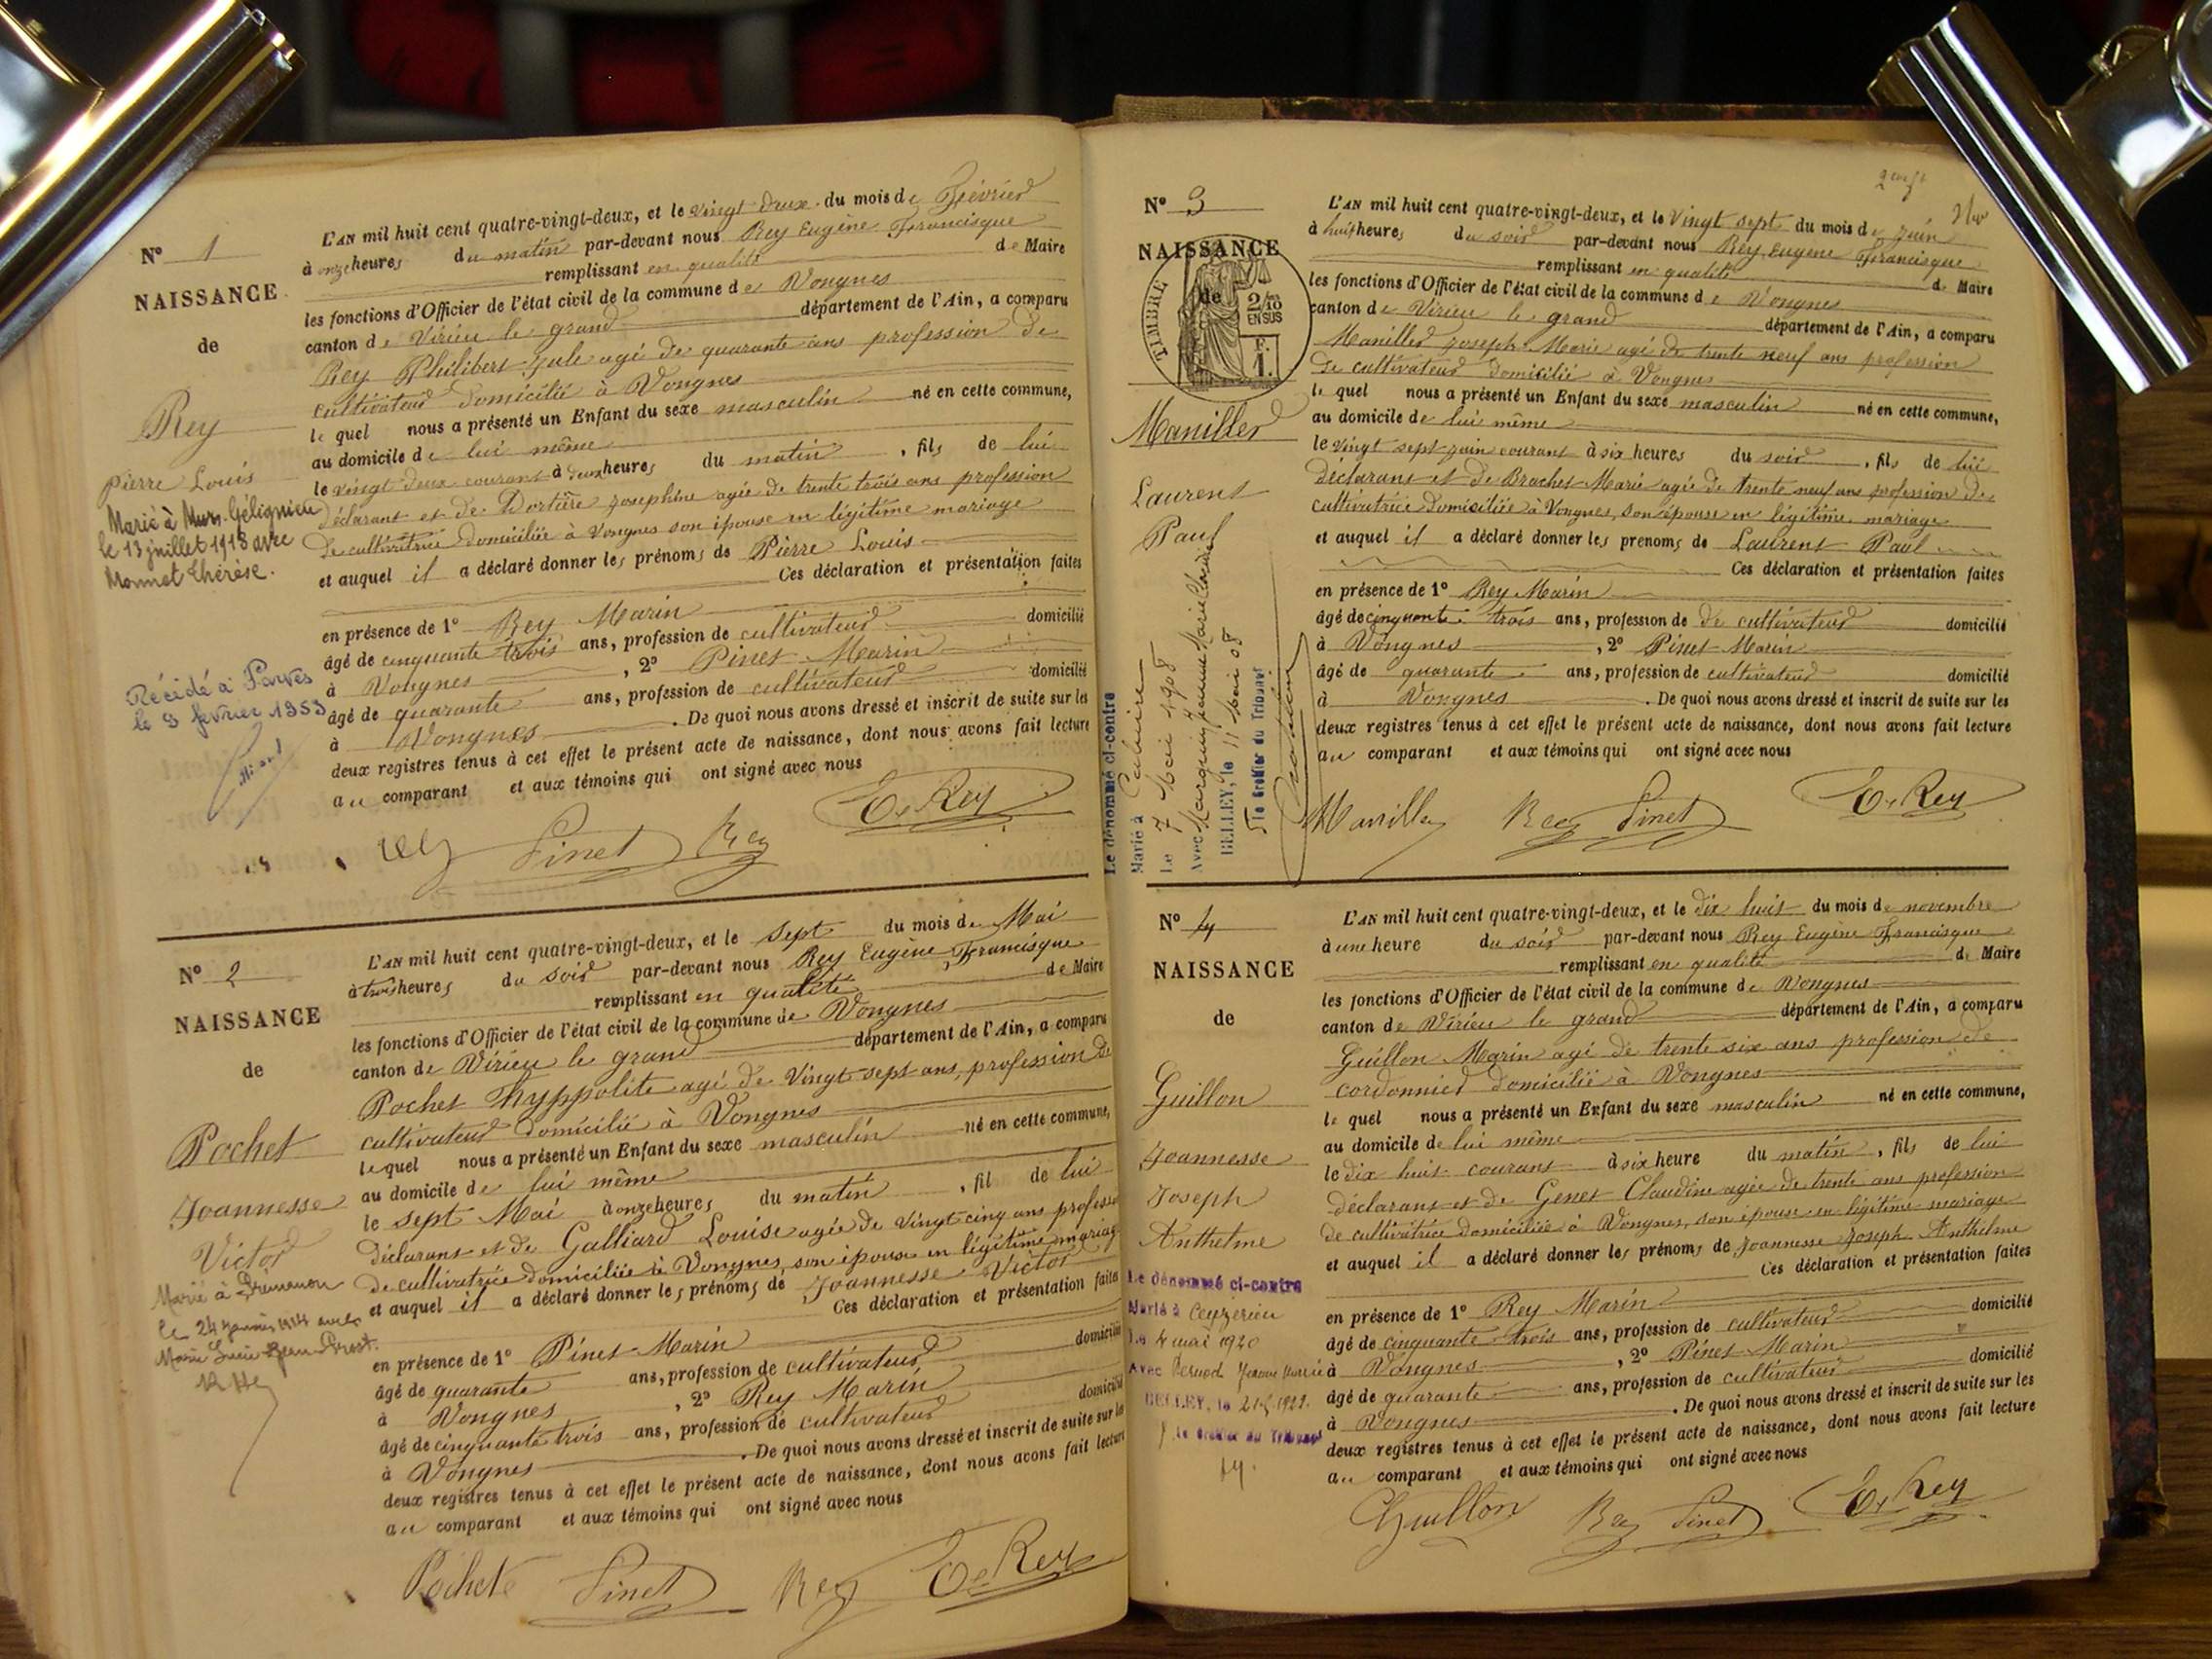 N° 1
NAISSANCE
de
Rey
Pierre Louis
Marié à Murs-Gélignieu
le 13 juillet 1918 avec
Monnet Thérèse.
Décédé à Parves
le 3 février 1953
L'AN mil huit cent quatre-vingt-deux, et le vingt deux du mois de Février
à onze heures du matin par-devant nous Rey Eugène Francisque
remplissant en qualité de Maire
les fonctions d'Officier de l'état civil de la commune de Vongnes
canton de Virieu le grand département de l'Ain, a comparu
Rey Philibert Jule agé de quarante ans profession de
cultivateur domicilié à Vongnes
le quel nous a présenté un Enfant du sexe masculin né en cette commune,
au domicile de lui même
le vingt deux courant à deux heures du matin, fils de lui
déclarant et de Dortière Josephine agée de trente trois ans profession
de cultivatrice domiciliée à Vongnes son épouse en légitime mariage
et auquel il a déclaré donner les prénoms de Pierre Louis
Ces déclaration et présentation faites
en présence de 1° Rey Marin
âgé de cinquante trois ans, profession de cultivateur domicilié
à Vongnes, 2° Pinet Marin
âgé de quarante ans, profession de cultivateur domicilié
à Vongnes. De quoi nous avons dressé et inscrit de suite sur les
deux registres tenus à cet effet le présent acte de naissance, dont nous avons fait lecture
au comparant et aux témoins qui ont signé avec nous
Rey Pinet Rey E. Rey
N° 2
NAISSANCE
de
Pochet
Joannesse
Victor
Marié à Prémanon
le 24 janvier 1914 avec
Marie Lucie Jean-Prost.
L'AN mil huit cent quatre-vingt-deux, et le sept du mois de Mai
à trois heures du soir par-devant nous Rey Eugène Francisque
remplissant en qualité de Maire
les fonctions d'Officier de l'état civil de la commune de Vongnes
canton de Virieu le grand département de l'Ain, a comparu
Pochet Hyppolite agé de Vingt sept ans, profession de
cultivateur domicilié à Vongnes
le quel nous a présenté un Enfant du sexe masculin né en cette commune,
au domicile de lui même
le sept Mai à onze heures du matin, fil de lui
déclarant et de Galliard Louise agée de Vingt cinq ans profession
de cultivatrice domiciliée à Vongnes, son épouse en légitime mariage
et auquel il a déclaré donner les prénoms de Joannesse Victor
Ces déclaration et présentation faites
en présence de 1° Pinet Marin
âgé de quarante ans, profession de cultivateur domicilié
à Vongnes, 2° Rey Marin
âgé de cinquante trois ans, profession de cultivateur domicilié
à Vongnes. De quoi nous avons dressé et inscrit de suite sur les
deux registres tenus à cet effet le présent acte de naissance, dont nous avons fait lecture
au comparant et aux témoins qui ont signé avec nous
Pochet Pinet Rey E. Rey
N° 3
NAISSANCE
de
TIMBRE
2/10
EN SUS
F.
1.
Maniller
Laurent
Paul
Le dénommé ci-contre
Marié à
Le 7 Mai 1908
Avec Marguin Jeanne Marie
BELLEY, le 11 Mai 08
Le Greffier du Tribunal
L'AN mil huit cent quatre-vingt-deux, et le Vingt sept du mois de juin
à huit heures du soir par-devant nous Rey Eugène Francisque
remplissant en qualité de Maire
les fonctions d'Officier de l'état civil de la commune de Vongnes
canton de Virieu le grand département de l'Ain, a comparu
Maniller Joseph Marie agé de trente neuf ans profession
de cultivateur domicilié à Vongnes
le quel nous a présenté un Enfant du sexe masculin né en cette commune,
au domicile de lui même
le vingt sept juin courant à six heures du soir, fils de lui
déclarant et de Brachet Marie agée de trente neuf ans profession de
cultivatrice domiciliée à Vongnes, son épouse en légitime mariage
et auquel il a déclaré donner les prenoms de Laurent Paul
Ces déclaration et présentation faites
en présence de 1° Rey Marin
âgé de cinquante trois ans, profession de de cultivateur domicilié
à Vongnes, 2° Pinet Marin
âgé de quarante ans, profession de cultivateur domicilié
à Vongnes. De quoi nous avons dressé et inscrit de suite sur les
deux registres tenus à cet effet le présent acte de naissance, dont nous avons fait lecture
au comparant et aux témoins qui ont signé avec nous
Maniller Rey Pinet E. Rey
N° 4
NAISSANCE
de
Guillon
Joannesse
Joseph
Anthelme
Le dénommé ci-contre
Marié à Ceyzerieu
Le 4 mai 1920
Avec Jeanne Marie
BELLEY, le
Le Greffier du Tribunal
L'AN mil huit cent quatre-vingt-deux, et le dix huit du mois de novembre
à une heure du soir par-devant nous Rey Eugène Francisque
remplissant en qualité de Maire
les fonctions d'Officier de l'état civil de la commune de Vongnes
canton de Virieu le grand département de l'Ain, a comparu
Guillon Marin agé de trente six ans profession de
cordonnier domicilié à Vongnes
le quel nous a présenté un Enfant du sexe masculin né en cette commune,
au domicile de lui même
le dix huit courant à six heure du matin, fils de lui
déclarant et de Genet Claudine agée de trente ans profession
de cultivatrice domiciliée à Vongnes, son épouse en légitime mariage
et auquel il a déclaré donner les prénoms de Joannesse Joseph Anthelme
Ces déclaration et présentation faites
en présence de 1° Rey Marin
âgé de cinquante trois ans, profession de cultivateur domicilié
à Vongnes, 2° Pinet Marin
âgé de quarante ans, profession de cultivateur domicilié
à Vongnes. De quoi nous avons dressé et inscrit de suite sur les
deux registres tenus à cet effet le présent acte de naissance, dont nous avons fait lecture
au comparant et aux témoins qui ont signé avec nous
Guillon Rey Pinet E. Rey